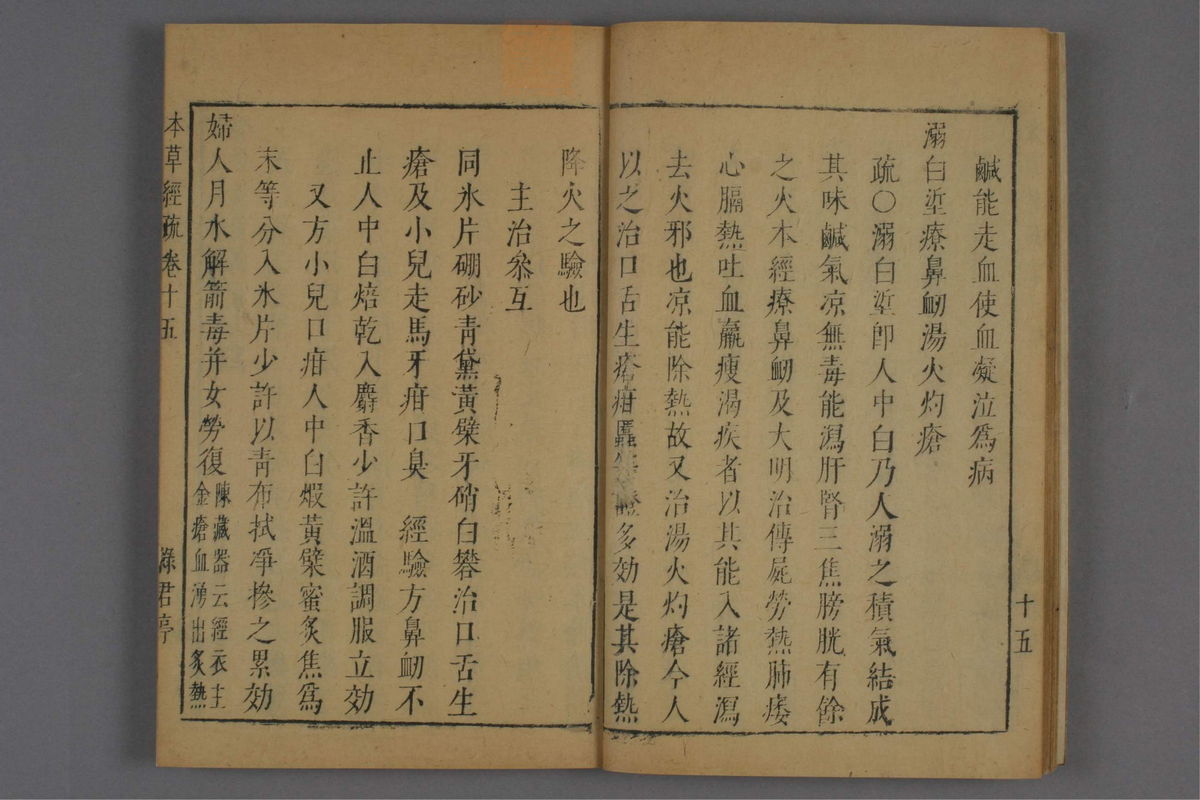 十五
鹹能走血使血凝泣爲病
溺白垽療鼻衂湯火灼瘡
疏○溺白垽卽人中白乃人溺之積氣結成
其味鹹氣凉無毒能瀉肝腎三焦膀胱有餘
之火本經療鼻衂及大明治傳屍勞熱肺痿
心膈熱吐血羸瘦渴疾者以其能入諸經瀉
去火邪也凉能除熱故又治湯火灼瘡今人
以之治口舌生瘡疳䘌多効是其除熱
降火之驗也
主治叅互
同氷片硼砂青黛黃檗牙硝白礬治口舌生
瘡及小兒走馬牙疳口臭 經驗方鼻衂不
止人中白焙乾入麝香少許溫酒調服立効
又方小兒口疳人中白煆黃檗蜜炙焦爲
末等分入氷片少許以青布拭凈摻之累効
婦人月水解箭毒并女勞復陳藏器云經衣主
金瘡血湧出炙熱
本草經疏卷十五
綠君亭